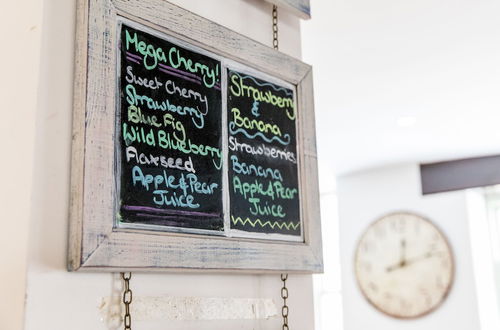 Mega Cherry!
Sweet Cherry
Strawberry
Blue Fig
Wild Blueberry
Flaxseed
Apple & Pear
Juice
Strawberry
&
Banana
Strawberries
Banana
Apple & Pear
Juice